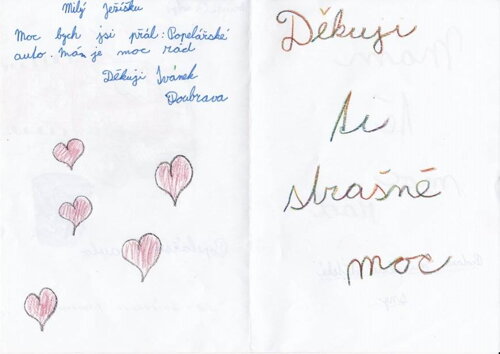 Milý Ježíšku
Moc bych jsi přál: Popelářské
auto. Mám je moc rád
Děkuji Ivánek
Doubrava
Děkuji
ti
strašně
moc